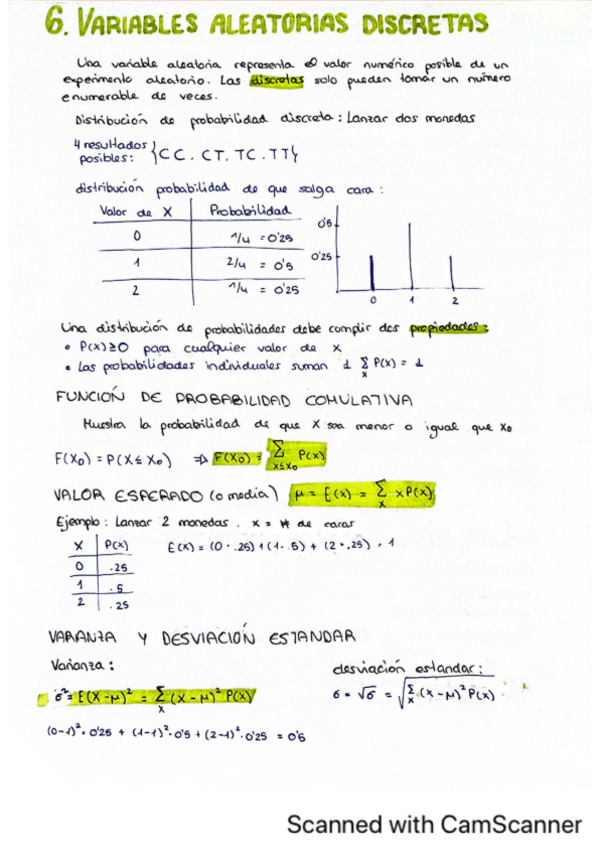 6. VARIABLES ALEATORIAS DISCRETAS
Una variable aleatoria representa el valor numérico posible de un
experimento aleatorio. Las discretas solo pueden tomar un número
enumerable de veces.
Distribución de probabilidad discreta: Lanzar dos monedas
4 resultados
posibles: {CC, CT, TC, TT}
distribución probabilidad de que salga cara:
Valor de X Probabilidad
0 1/4 = 0'25
1 2/4 = 0'5
2 1/4 = 0'25
0'5
0'25
0 1 2
Una distribución de probabilidades debe cumplir dos propiedades:
• P(x)≥0 para cualquier valor de x
• Las probabilidades individuales suman 1 Σx P(x) = 1
FUNCIÓN DE PROBABILIDAD COMULATIVA
Muestra la probabilidad de que X sea menor o igual que X₀
F(X₀) = P(X ≤ X₀) ⇒ F(X₀) = Σ P(x)
X≤X₀
VALOR ESPERADO (o media) μ = E(x) = Σ x P(x)
x
Ejemplo: Lanzar 2 monedas. x = # de caras
X P(x) E(x) = (0 · .25) + (1 · .5) + (2 · .25) = 1
0 .25
1 .5
2 .25
VARANZA Y DESVIACIÓN ESTANDAR
Varianza: desviación estandar:
σ² = E(X-μ)² = Σ (x-μ)² P(x) σ = √σ = √Σ (x-μ)² P(x)
x x
(0-1)² · 0'25 + (1-1)² · 0'5 + (2-1)² · 0'25 = 0'5
Scanned with CamScanner